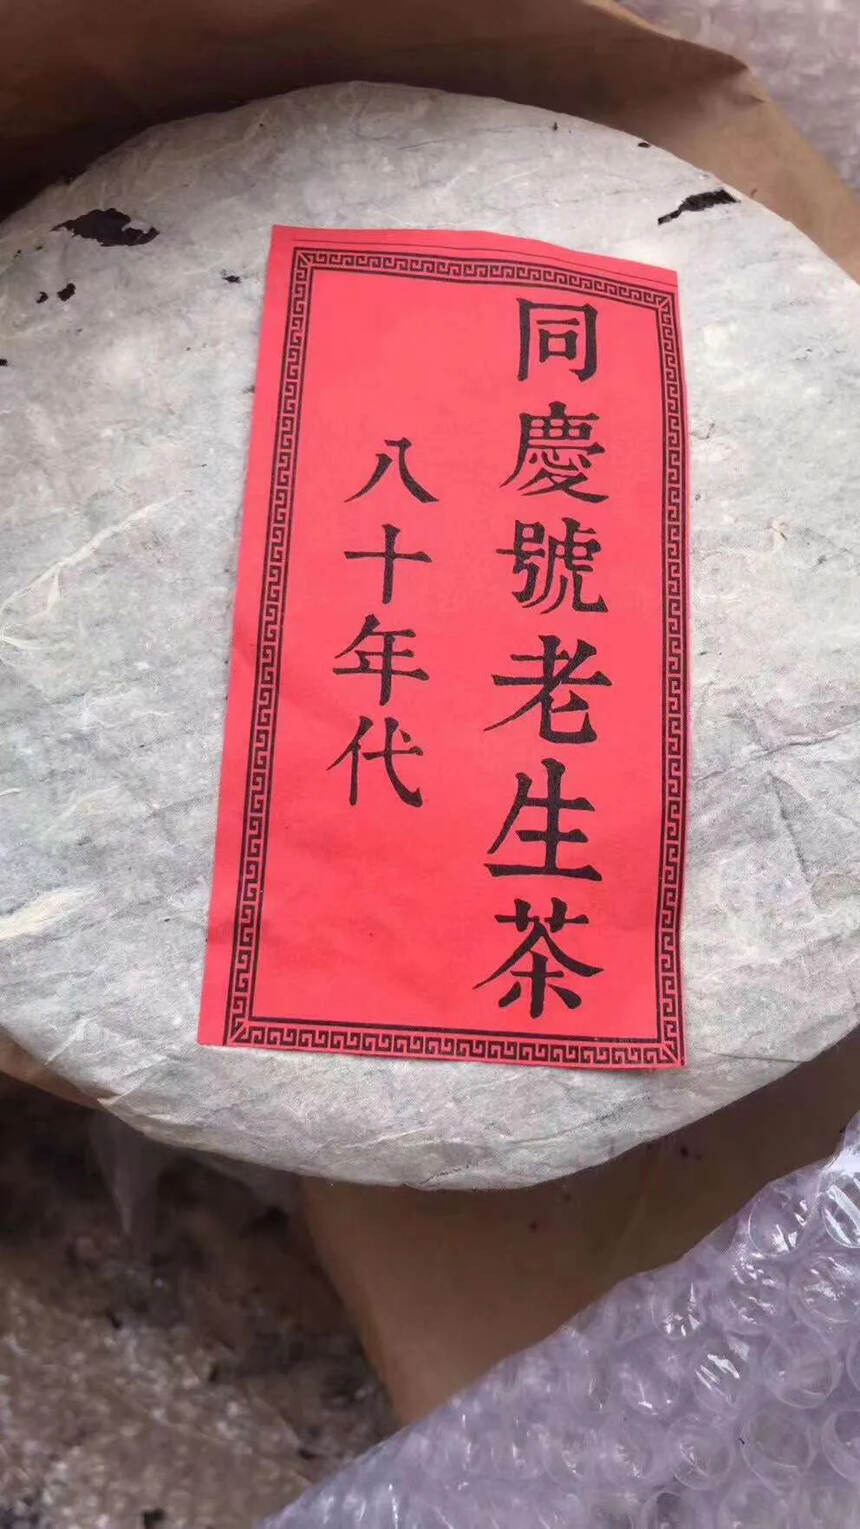 同慶號老生茶
八十年代